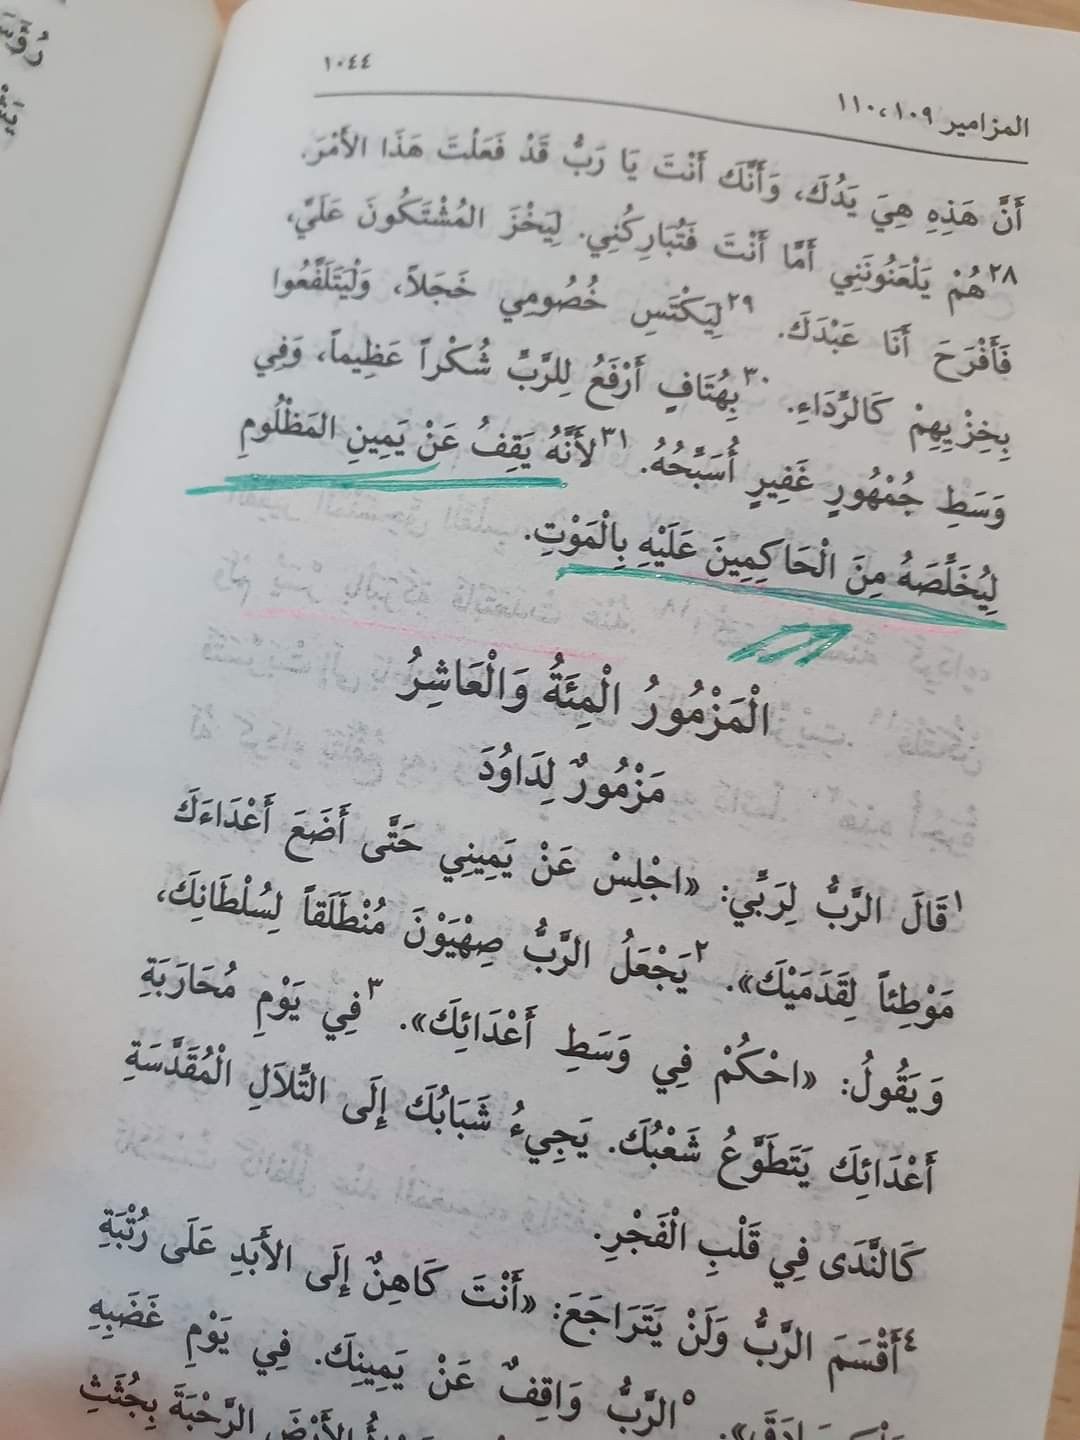 ١٠٤٤
المزامير ١٠٩، ١١٠
أَنَّ هَذِهِ هِيَ يَدُكَ، وَأَنَّكَ أَنْتَ يَا رَبُّ قَدْ فَعَلْتَ هَذَا الأَمْرَ.
٢٨هُمْ يَلْعَنُونَنِي أَمَّا أَنْتَ فَتُبَارِكُنِي. لِيَخْزَ المُشْتَكُونَ عَلَيَّ،
فَأَفْرَحَ أَنَا عَبْدَكَ. ٢٩لِيَكْتَسِ خُصُومِي خَجَلاً، وَلْيَتَلَفَّعُوا
بِخِزْيِهِمْ كَالرِّدَاءِ. ٣٠بِهُتَافٍ أَرْفَعُ لِلرَّبِّ شُكْراً عَظِيماً، وَفِي
وَسَطِ جُمْهُورٍ غَفِيرٍ أُسَبِّحُهُ. ٣١لأَنَّهُ يَقِفُ عَنْ يَمِينِ المَظْلُومِ
لِيُخَلِّصَهُ مِنَ الْحَاكِمِينَ عَلَيْهِ بِالْمَوْتِ.
الْمَزْمُورُ الْمِئَةُ وَالْعَاشِرُ
مَزْمُورٌ لِدَاوُدَ
١قَالَ الرَّبُّ لِرَبِّي: «اجْلِسْ عَنْ يَمِينِي حَتَّى أَضَعَ أَعْدَاءَكَ
مَوْطِئاً لِقَدَمَيْكَ». ٢يَجْعَلُ الرَّبُّ صِهْيَوْنَ مُنْطَلَقاً لِسُلْطَانِكَ،
وَيَقُولُ: «احْكُمْ فِي وَسَطِ أَعْدَائِكَ». ٣فِي يَوْمِ مُحَارَبَةِ
أَعْدَائِكَ يَتَطَوَّعُ شَعْبُكَ. يَجِيءُ شَبَابُكَ إِلَى التِّلاَلِ الْمُقَدَّسَةِ
كَالنَّدَى فِي قَلْبِ الْفَجْرِ.
٤أَقْسَمَ الرَّبُّ وَلَنْ يَتَرَاجَعَ: «أَنْتَ كَاهِنٌ إِلَى الأَبَدِ عَلَى رُتْبَةِ
٥الرَّبُّ وَاقِفٌ عَنْ يَمِينِكَ. فِي يَوْمِ غَضَبِهِ
الأَرْضَ الرَّحْبَةَ بِجُثَثِ